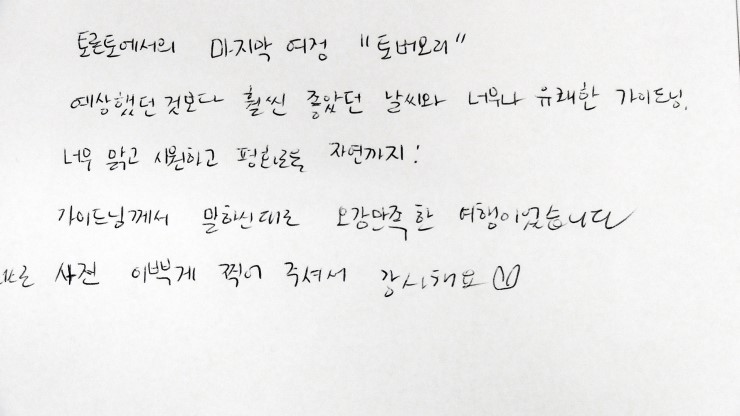 토론토에서의 마지막 여정 "토버모리"
예상했던 것보다 훨씬 좋았던 날씨와 너무나 유쾌한 가이드님,
너무 맑고 시원하고 평화로운 자연까지!
가이드님께서 말하신대로 오감만족한 여행이었습니다
사진 이쁘게 찍어 주셔서 감사해요♡